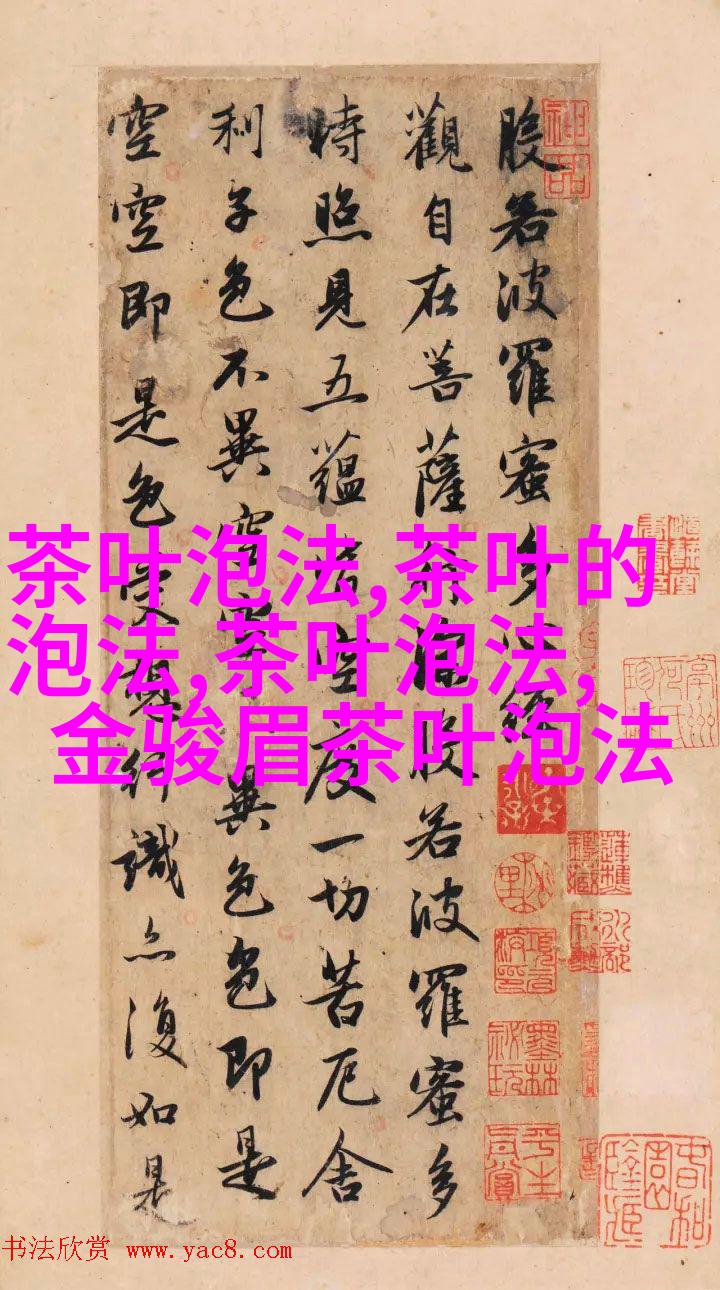 般若波羅蜜多心經
觀自在菩薩行深般若波羅蜜多
時照見五蘊皆空度一切苦厄舍
利子色不異空空不異色色即是
空空即是色受想行識亦復如是
茶叶泡法,茶叶的
泡法,茶叶泡法,
金骏眉茶叶泡法
书法欣赏 www.yac8.com